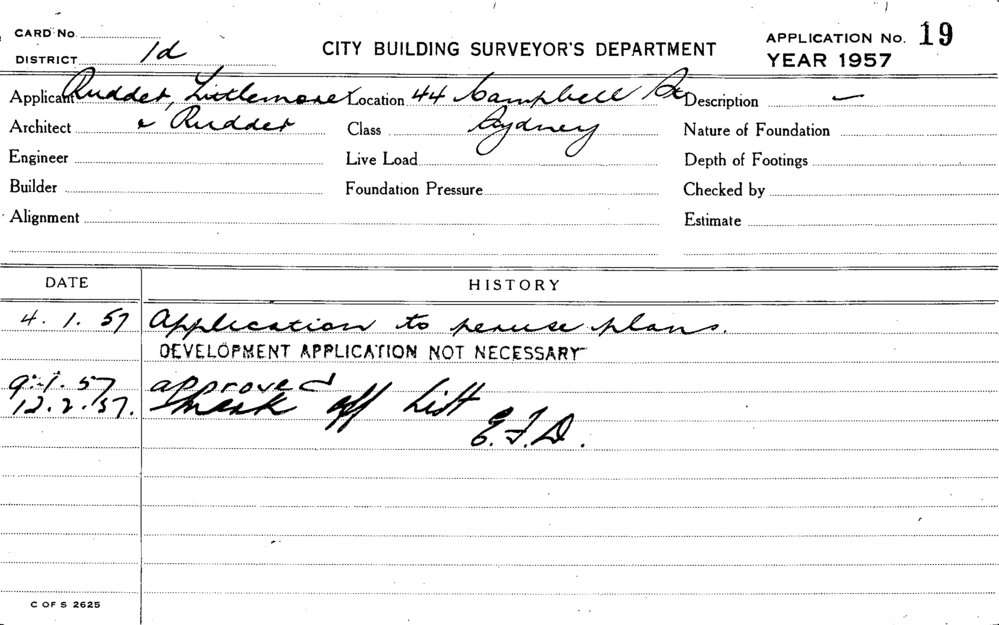 CARD No.
DISTRICT 1d
CITY BUILDING SURVEYOR'S DEPARTMENT
APPLICATION No. 19
YEAR 1957
Applicant Rudder, Littlemore Location 44 Campbell St Description —
Architect & Rudder Class Sydney Nature of Foundation
Engineer Live Load Depth of Footings
Builder Foundation Pressure Checked by
Alignment Estimate
DATE HISTORY
4.1.57 Application to peruse plans.
DEVELOPMENT APPLICATION NOT NECESSARY
9.1.57 approved
12.2.57. off list
E.F.D.
C OF S 2625